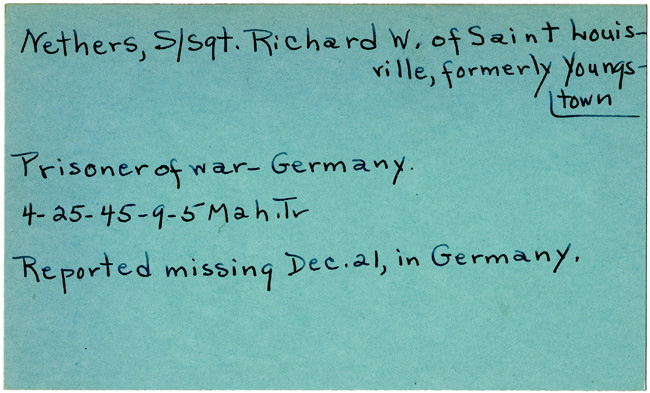 Nethers, S/Sgt. Richard W. of Saint Louis-
ville, formerly Youngs-
town
Prisoner of war - Germany.
4-25-45-9-5 Mah. Tr
Reported missing Dec. 21, in Germany.